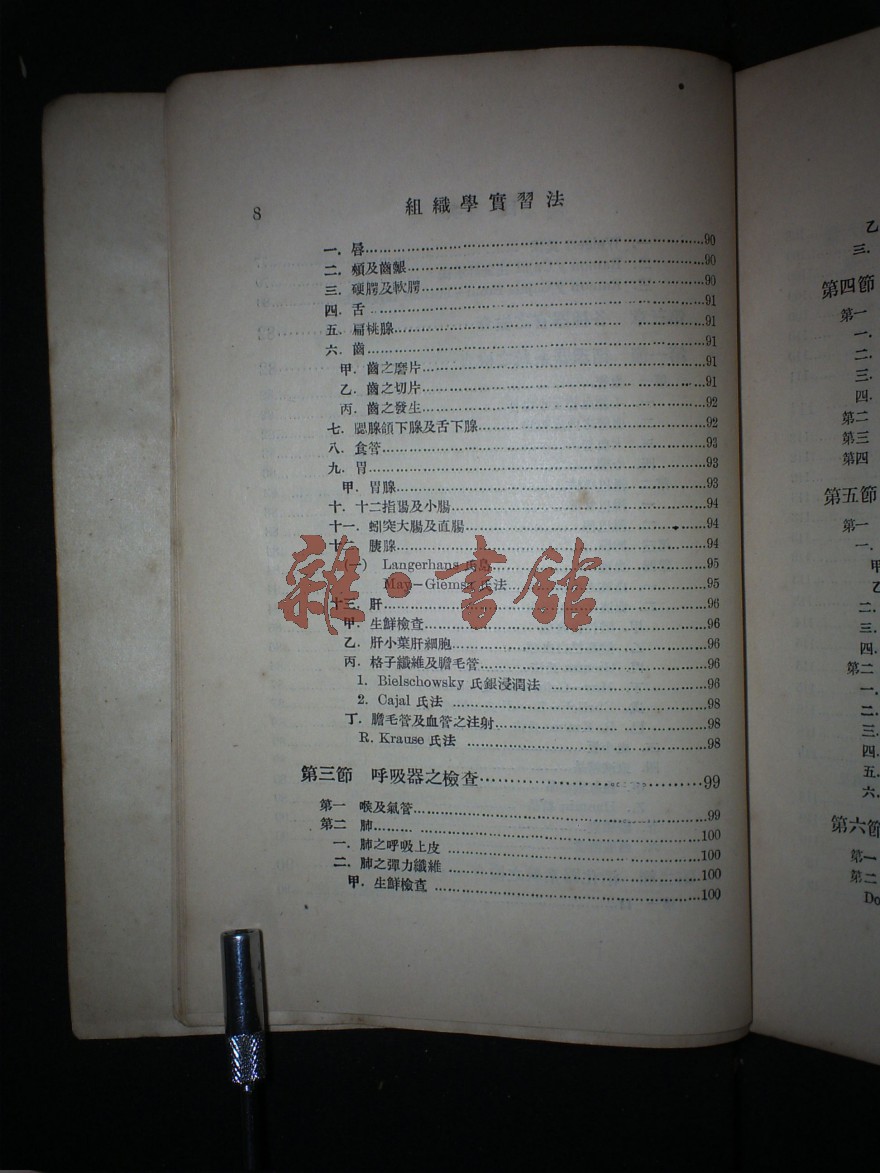 8 組織學實習法
一．唇……90
二．頰及齒齦……90
三．硬腭及軟腭……90
四．舌……91
五．扁桃腺……91
六．齒……91
甲．齒之磨片……91
乙．齒之切片……91
丙．齒之發生……92
七．腮腺頜下腺及舌下腺……92
八．食管……93
九．胃……93
甲．胃腺……93
十．十二指腸及小腸……94
十一．蚓突大腸及直腸……94
十二．胰腺……94
(一) Langerhans 氏島……95
May—Giemsa 氏法……95
十三．肝……96
甲．生鮮檢查……96
乙．肝小葉肝細胞……96
丙．格子纖維及膽毛管……96
1. Bielschowsky 氏銀浸潤法……96
2. Cajal 氏法……98
丁．膽毛管及血管之注射……98
R. Krause 氏法……98
第三節 呼吸器之檢查……99
第一 喉及氣管……99
第二 肺……100
一．肺之呼吸上皮……100
二．肺之彈力纖維……100
甲．生鮮檢查……100
雜·書館
乙
三．
第四節
第一
一．
二．
三．
四．
第二
第三
第四
第五節
第一
一．
甲
乙
二．
三．
四．
第二
一．
二．
三．
四．
五．
六．
第六節
第一
第二
Do